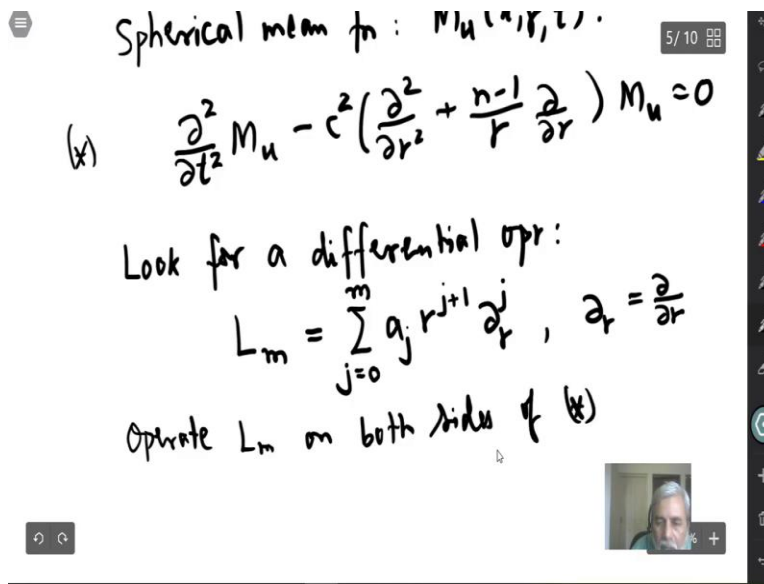 Spherical mean fn : Mu(x,r,t).
5/10
(*) ∂²/∂t² Mu - c² (∂²/∂r² + n-1/r ∂/∂r) Mu = 0
Look for a differential opr:
Lm = Σ_{j=0}^{m} aj r^{j+1} ∂r^j , ∂r = ∂/∂r
Operate Lm on both sides of (*)
% +